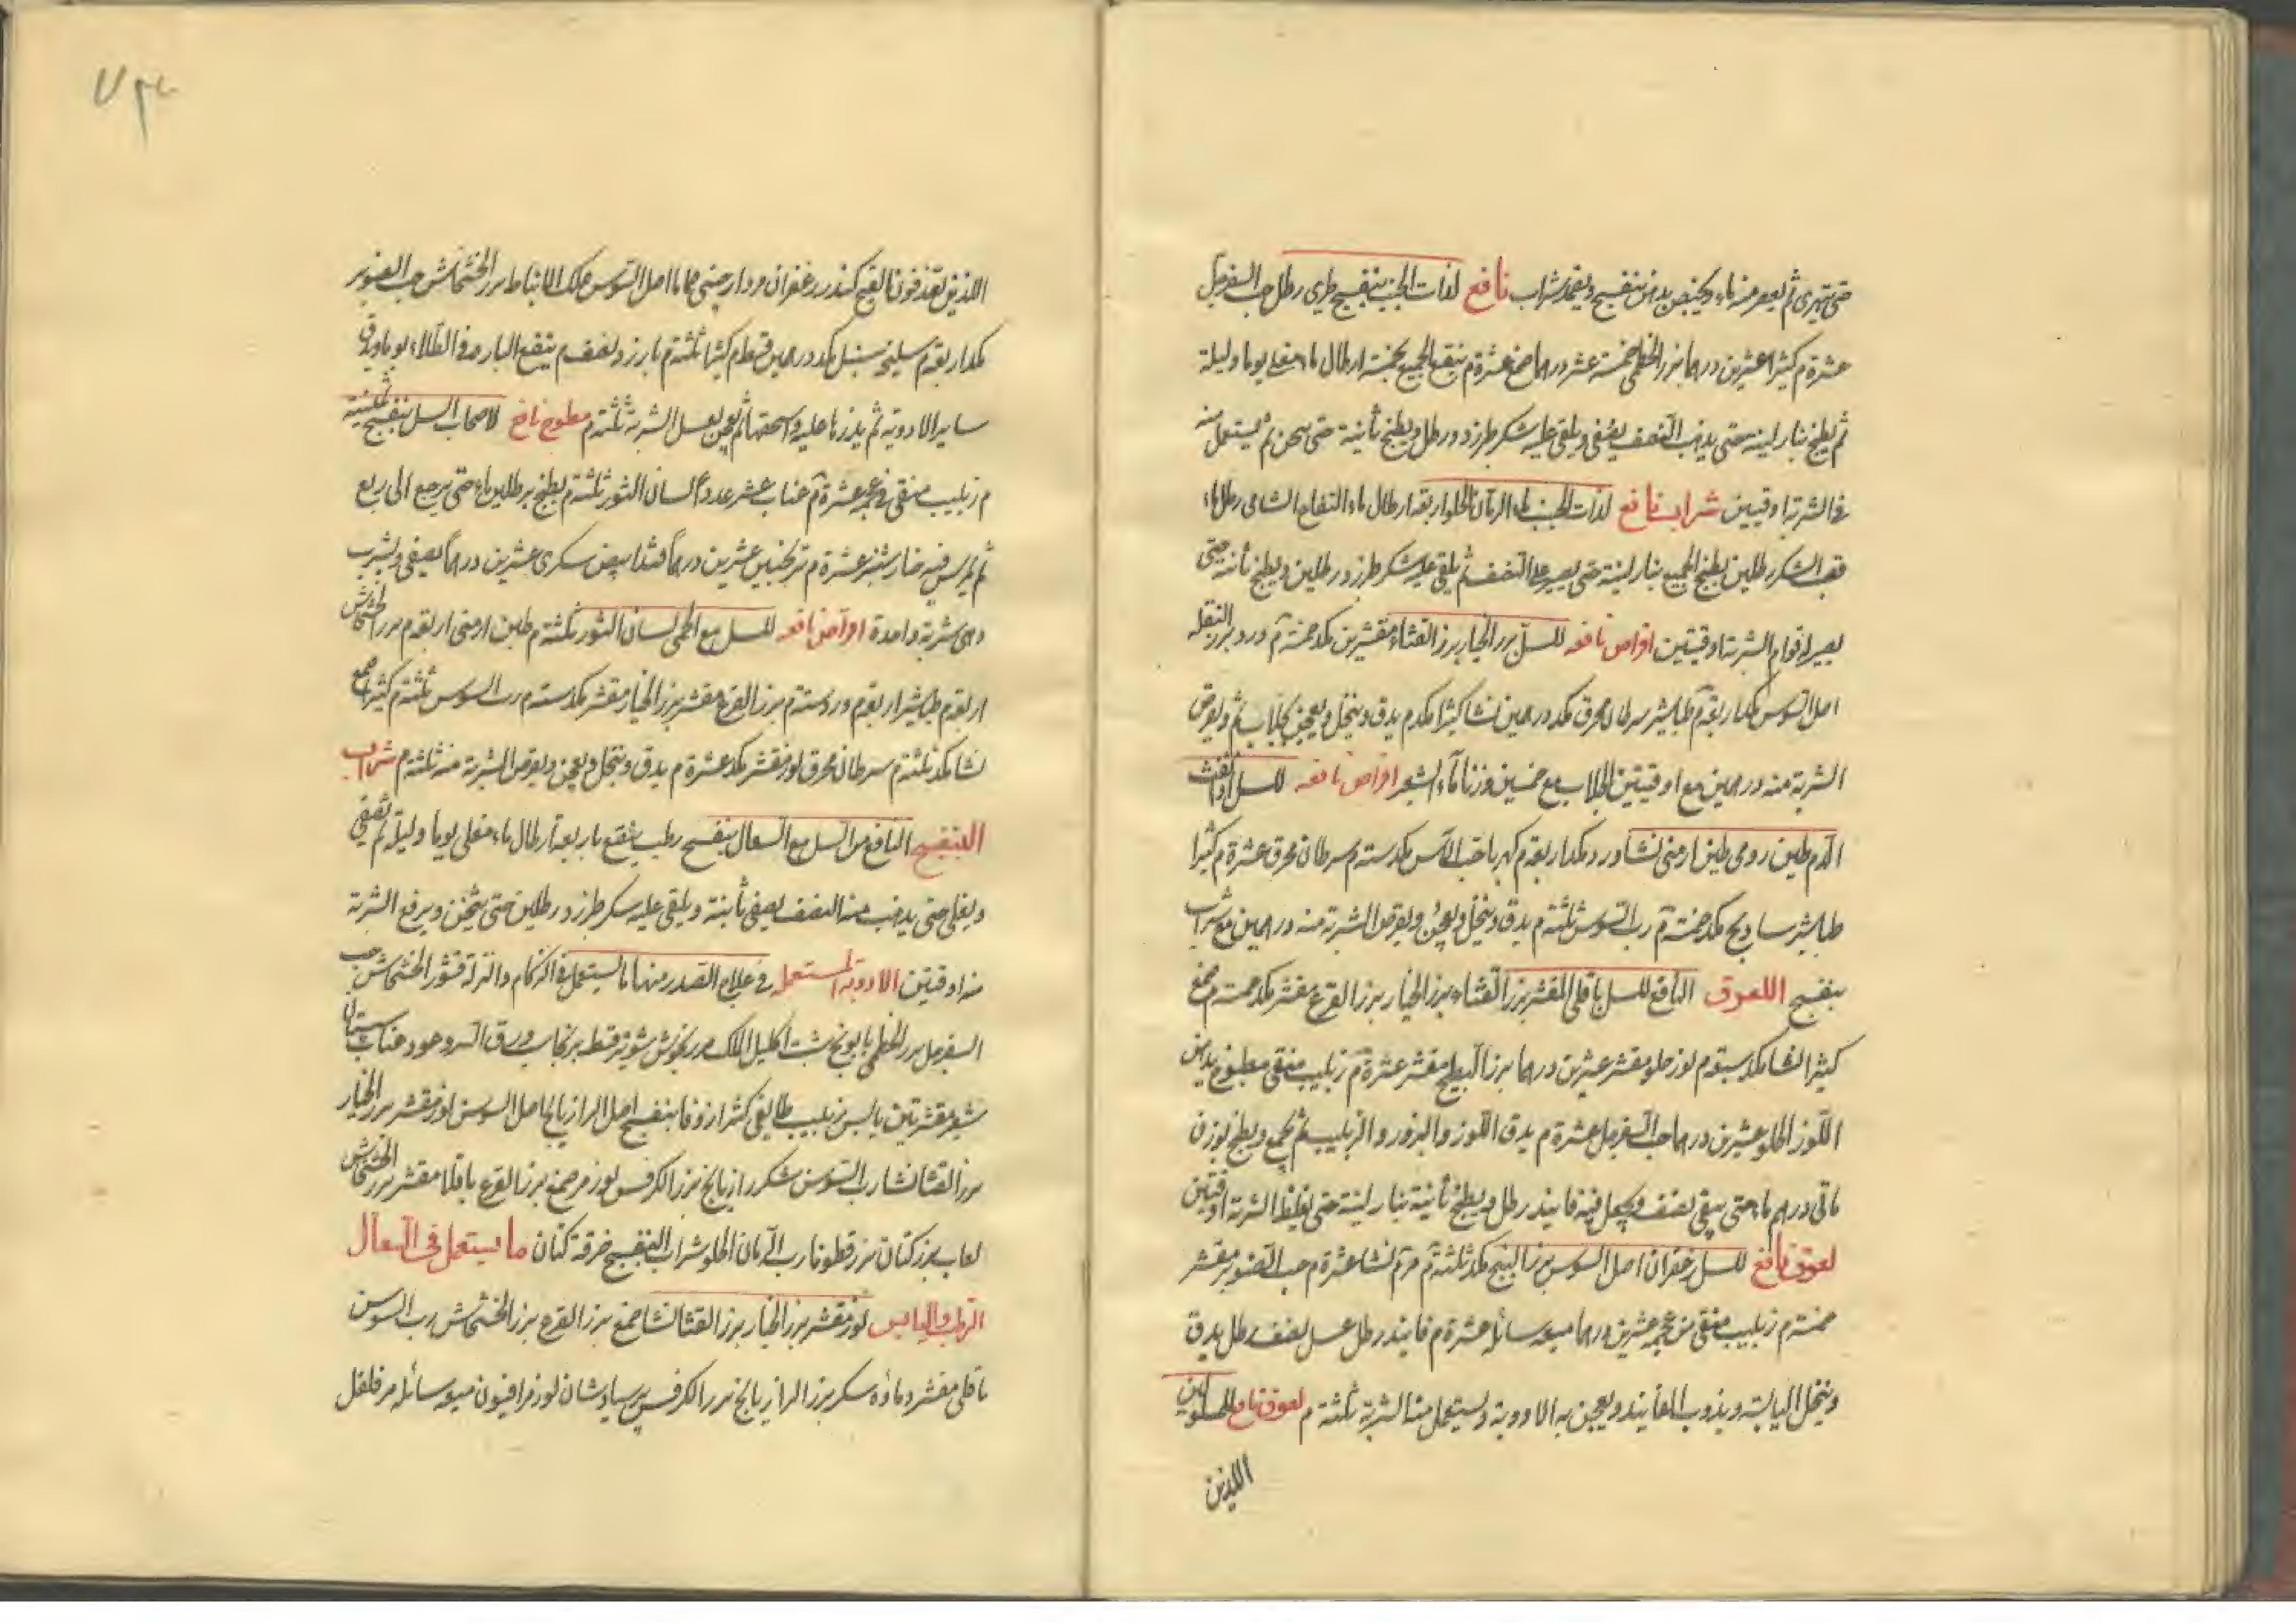 حتى يتهرى ثم يعصر منه ماء ويخبص بدهن بنفسج ويضمد شراب نافع لذات الجنب بنفسج طرى رطل حب السفرجل
عشرة م كثيرا عشرين درهما بزر الخطمى خمسة عشر درهما صمغ عشرة م ينقع الجميع بخمسة ارطال ماء مغلى يوما وليلة
ثم يطبخ بنار لينة حتى يذهب النصف يصفى ويلقى عليه سكر طبرزد رطل ويطبخ ثانية حتى يثخن ثم يستعمل منه
الشربة اوقيتين شراب نافع لذات الجنب ماء الرمان الحلو اربعة ارطال ماء التفاح الشامى رطل ماء
قصب السكر رطلين يطبخ الجميع بنار لينة حتى يصير على النصف ثم يلقى عليه سكر طبرزد رطلين ويطبخ ثانية حتى
يصير له قوام الشربة اوقيتين اقراص نافعه للسل بزر الخيار بزر القثاء مقشرين مكد خمسة م ورد بزر البقلة
اصل السوس مكد اربعة م طباشير سرطان محرق مكد درهمين نشا كثيرا مكد م يدق وينخل ويعجن بجلاب ويقرص
الشربة منه درهمين مع اوقيتين الجلاب مع خمسين وزنا ماء الشعير اقراص نافعه للسل اذا نفث
الدم طين رومى طين ارمنى نشا ورد مكد اربعة م كهربا حب الآس مكد ستة م سرطان محرق عشرة م كثيرا
طباشير ساذج مكد خمسة م رب السوس ثلثة م يدق وينخل ويعجن ويقرص الشربة منه درهمين مع شراب
بنفسج اللعوق النافع للسل باقلى المقشر بزر القثاء بزر الخيار بزر القرع مقشر مكد خمسة م صمغ
كثيرا نشا مكد سبعة م لوز حلو مقشر عشرين درهما بزر البطيخ مقشر عشرة م زبيب منقى مطبوخ بدهن
اللوز الحلو عشرين درهما حب السفرجل عشرة م يدق اللوز والبزور والزبيب ثم يجمع ويطبخ بوزن
مأتى درهم ماء حتى يبقى نصف ويجعل فيه فانيذ رطل ويطبخ ثانية بنار لينة حتى يغلظ الشربة اوقيتين
لعوق نافع للسل زعفران اصل السوس بزر البنج مكد ثلثة م مر م نشا عشرة م حب الصنوبر مقشر
خمسة م زبيب منقى من عجمه عشرين درهما ميعه سائله عشرة م فانيذ رطل عسل نصف رطل يدق
وينخل اليابسة ويذوب الفانيذ ويعجن به الادوية ويستعمل منه الشربة ثلثة م لعوق نافع للمسلولين
اللذين
اللذين يقذفون القيح كندر زعفران مر دارچينى اصل السوس علك الانباط بزر الخشخاش حب الصنوبر
مكد اربعة م سليخه سنبل مكد درهمين قسط م كثيرا ثلثة م بارزد نصف م ينقع البارزد فى الطلاء يوما ويدق
ساير الادوية ثم يذر عليه واسحقها ثم يعجن بعسل الشربة ثلثة م مطبوخ نافع لاصحاب السل بنفسج ثلثة
م زبيب منقى من عجمه عشرة م عناب عشر عددا لسان الثور ثلثة م يطبخ برطلين ماء حتى يرجع الى ربع
ثم يمرس فيه خيار شنبر عشرة م ترنجبين عشرين درهما قند ابيض سكرى عشرين درهما يصفى ويشرب
وهى شربة واحدة اقراص نافعه للسل مع الحمى لسان الثور ثلثة م طين ارمنى اربعة م بزر الخشخاش
اربعة م طباشير اربعة م ورد ستة م بزر القرع مقشر بزر الخيار مقشر مكد ستة م رب السوس ثلثة م كثيرا صمغ
نشا مكد ثلثة م سرطان محرق لوز مقشر مكد عشرة م يدق وينخل ويعجن ويقرص الشربة منه ثلثة م شراب
البنفسج النافع من السل مع السعال بنفسج رطب ينقع باربعة ارطال ماء مغلى يوما وليلة ثم يصفى
ويغلى حتى يذهب منه النصف يصفى ثانية ويلقى عليه سكر طبرزد رطلين حتى يثخن ويرفع الشربة
منه اوقيتين الادوية المستعملة فى علاج الصدر منها ما يستعمل فى الزكام والنزلة قشور الخشخاش حب
السفرجل بزر الخطمى بابونج شبت اكليل الملك مرزنجوش شونيز قسط برنجاسف ورق السرو عود عناب سپستان
شعير مقشر تين يابس زبيب طايفى كثيرا زوفا بنفسج اصل الرازيانج اصل السوس لوز مقشر بزر الخيار
بزر القثا نشا رب السوس سكر رازيانج بزر الكرفس لوز مر صمغ بزر القرع باقلا مقشر بزر الخشخاش
لعاب بزر كتان بزر قطونا رب الرمان الحلو شراب البنفسج خرقة كتان ما يستعمل فى السعال
الرطب واليابس لوز مقشر بزر الخيار بزر القثا نشا صمغ بزر القرع بزر الخشخاش رب السوس
باقلى مقشر وماؤه سكر بزر الرازيانج بزر الكرفس پرسياوشان لوز مر افيون ميعه سائله مر فلفل